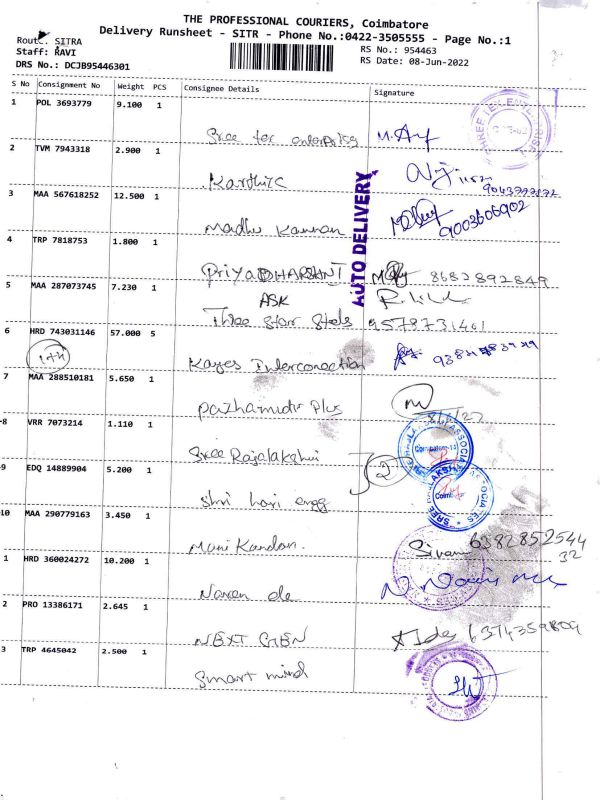 THE PROFESSIONAL COURIERS, Coimbatore
Delivery Runsheet - SITR - Phone No.:0422-3505555 - Page No.:1
Route. SITRA
RS No.: 954463
Staff: RAVI
RS Date: 08-Jun-2022
DRS No.: DCJB95446301
S No Consignment No Weight PCS Consignee Details Signature
1 POL 3693779 9.100 1
Sree tex enterprises
2 TVM 7943318 2.900 1
Karthik
3 MAA 567618252 12.500 1
Madhu Kannan 9003606902
AUTO DELIVERY
4 TRP 7818753 1.800 1
PriyaDHARSHNI 8682892849
5 MAA 287073745 7.230 1
ASK
Three Starr Steels 9578731401
6 HRD 743031146 57.000 5
1+4
Kayes Interconection
7 MAA 288510181 5.650 1
Pazhamudir Plus
-8 VRR 7073214 1.110 1
Sree Rajalakshmi
-9 EDQ 14889904 5.200 1
2
Shri hari engg
10 MAA 290779163 3.450 1
Mani Kandan. Sivam 6382852544
32
1 HRD 360024272 10.200 1
Naren de
2 PRO 13386171 2.645 1
NEXT GEN 6374359804
3 TRP 4645042 2.500 1
Smart mind